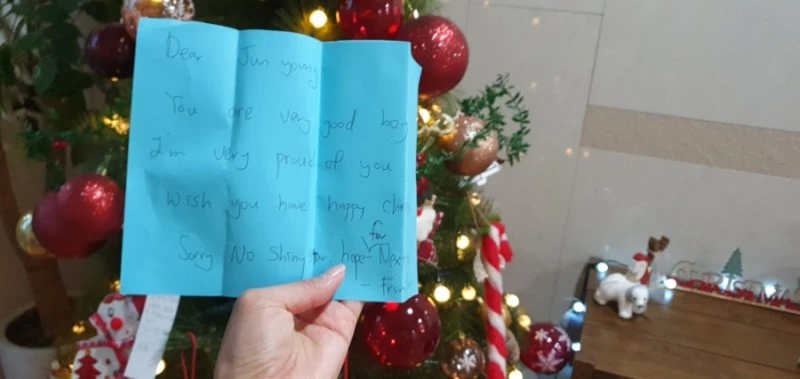 Dear Jun young
You are very good boy
I'm very proud of you
Wish you have happy chr
Sorry No Shiny hope for Next
- From
CHRISTMAS